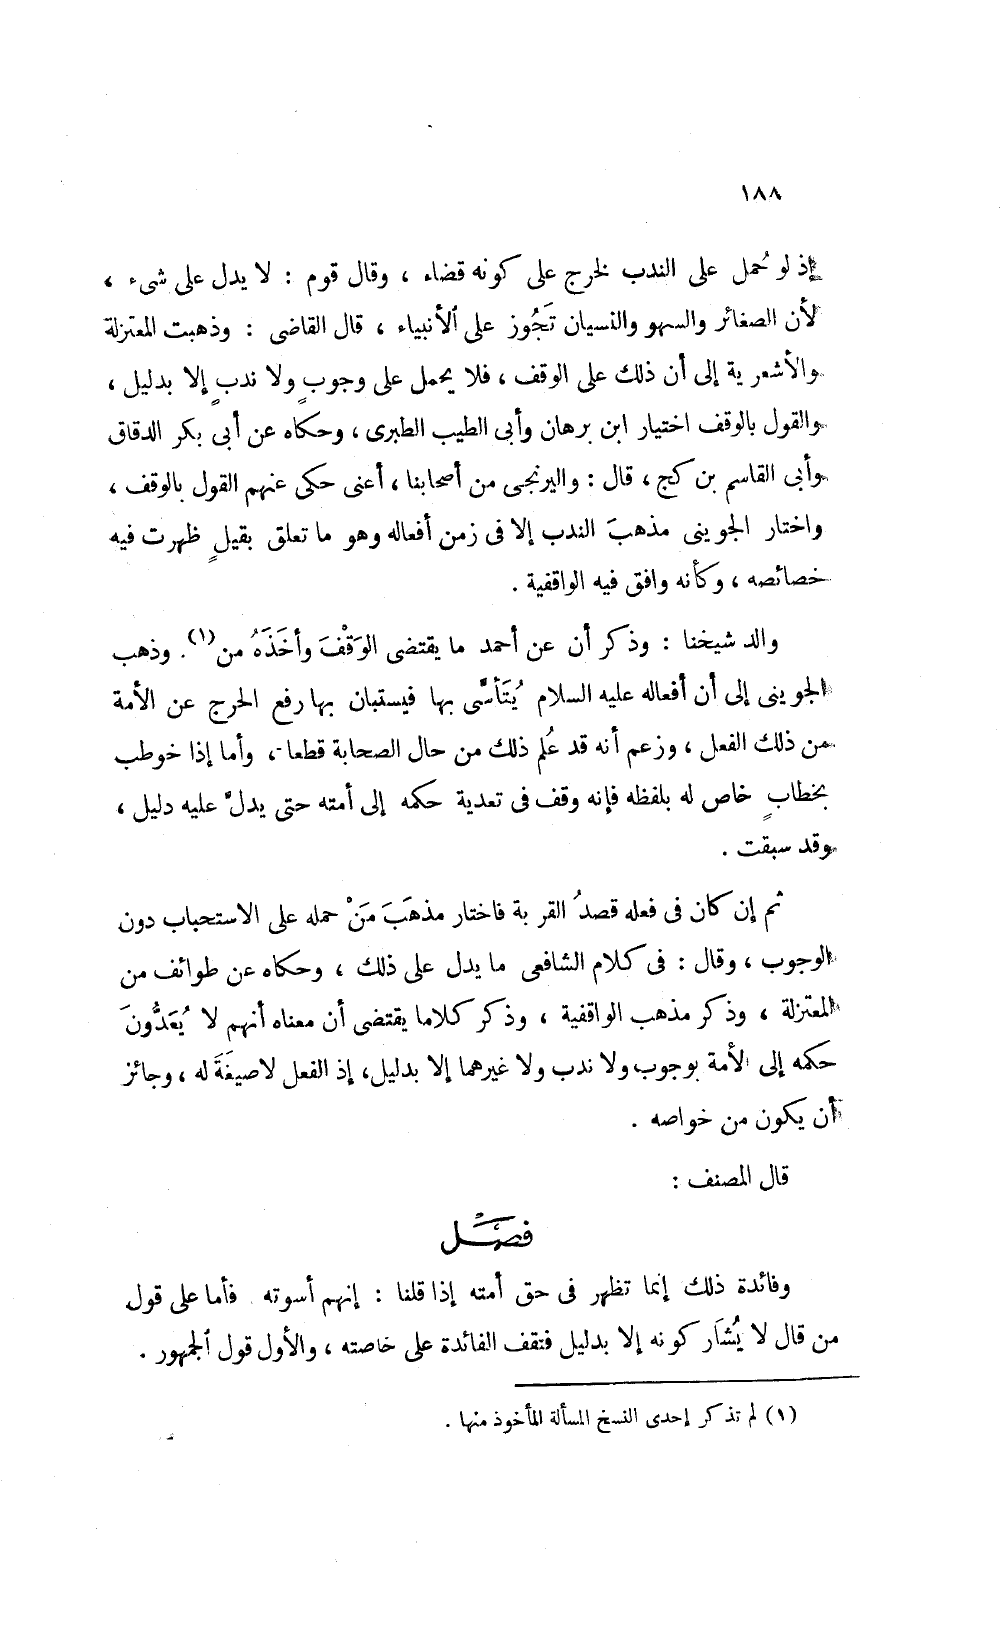 ١٨٨
إذ لو حُمل على الندب لخرج على كونه قضاء ، وقال قوم : لا يدل على شىء ،
لأن الصغائر والسهو والنسيان تَجُوز على الأنبياء ، قال القاضى : وذهبت المعتزلة
والأشعرية إلى أن ذلك على الوقف ، فلا يحمل على وجوبٍ ولا ندبٍ إلا بدليل ،
والقول بالوقف اختيار ابن برهان وأبى الطيب الطبرى ، وحكاه عن أبى بكر الدقاق
وأبى القاسم بن كج ، قال : واليرنجى من أصحابنا ، أعنى حكى عنهم القول بالوقف ،
واختار الجوينى مذهبَ الندب إلا فى زمن أفعاله وهو ما تعلق بقيلٍ ظهرت فيه
خصائصه ، وكأنه وافق فيه الواقفية .
والد شيخنا : وذكر أن عن أحمد ما يقتضى الوَقْفَ وأخَذَهُ من(١) . وذهب
الجوينى إلى أن أفعاله عليه السلام يُتَأسَّى بها فيستبان بها رفع الحرج عن الأمة
من ذلك الفعل ، وزعم أنه قد عُلم ذلك من حال الصحابة قطعا ، وأما إذا خوطب
بخطابٍ خاص له بلفظه فإنه وقف فى تعدية حكمه إلى أمته حتى يدلَّ عليه دليل ،
وقد سبقت .
ثم إن كان فى فعله قصدُ القربة فاختار مذهَبَ مَنْ حمله على الاستحباب دون
الوجوب ، وقال : فى كلام الشافعى ما يدل على ذلك ، وحكاه عن طوائف من
المعتزلة ، وذكر مذهب الواقفية ، وذكر كلاما يقتضى أن معناه أنهم لا يُعَدُّونَ
حكمه إلى الأمة بوجوب ولا ندب ولا غيرهما إلا بدليل، إذ الفعل لا صيغَةَ له ، وجائز
أن يكون من خواصه .
قال المصنف :
فصل
وفائدة ذلك إنما تظهر فى حق أمته إذا قلنا : إنهم أسوته فأما على قول
من قال لا يُشَاركونه إلا بدليل فتقف الفائدة على خاصته ، والأول قول الجمهور .
(١) لم تذكر إحدى النسخ المسألة المأخوذ منها .